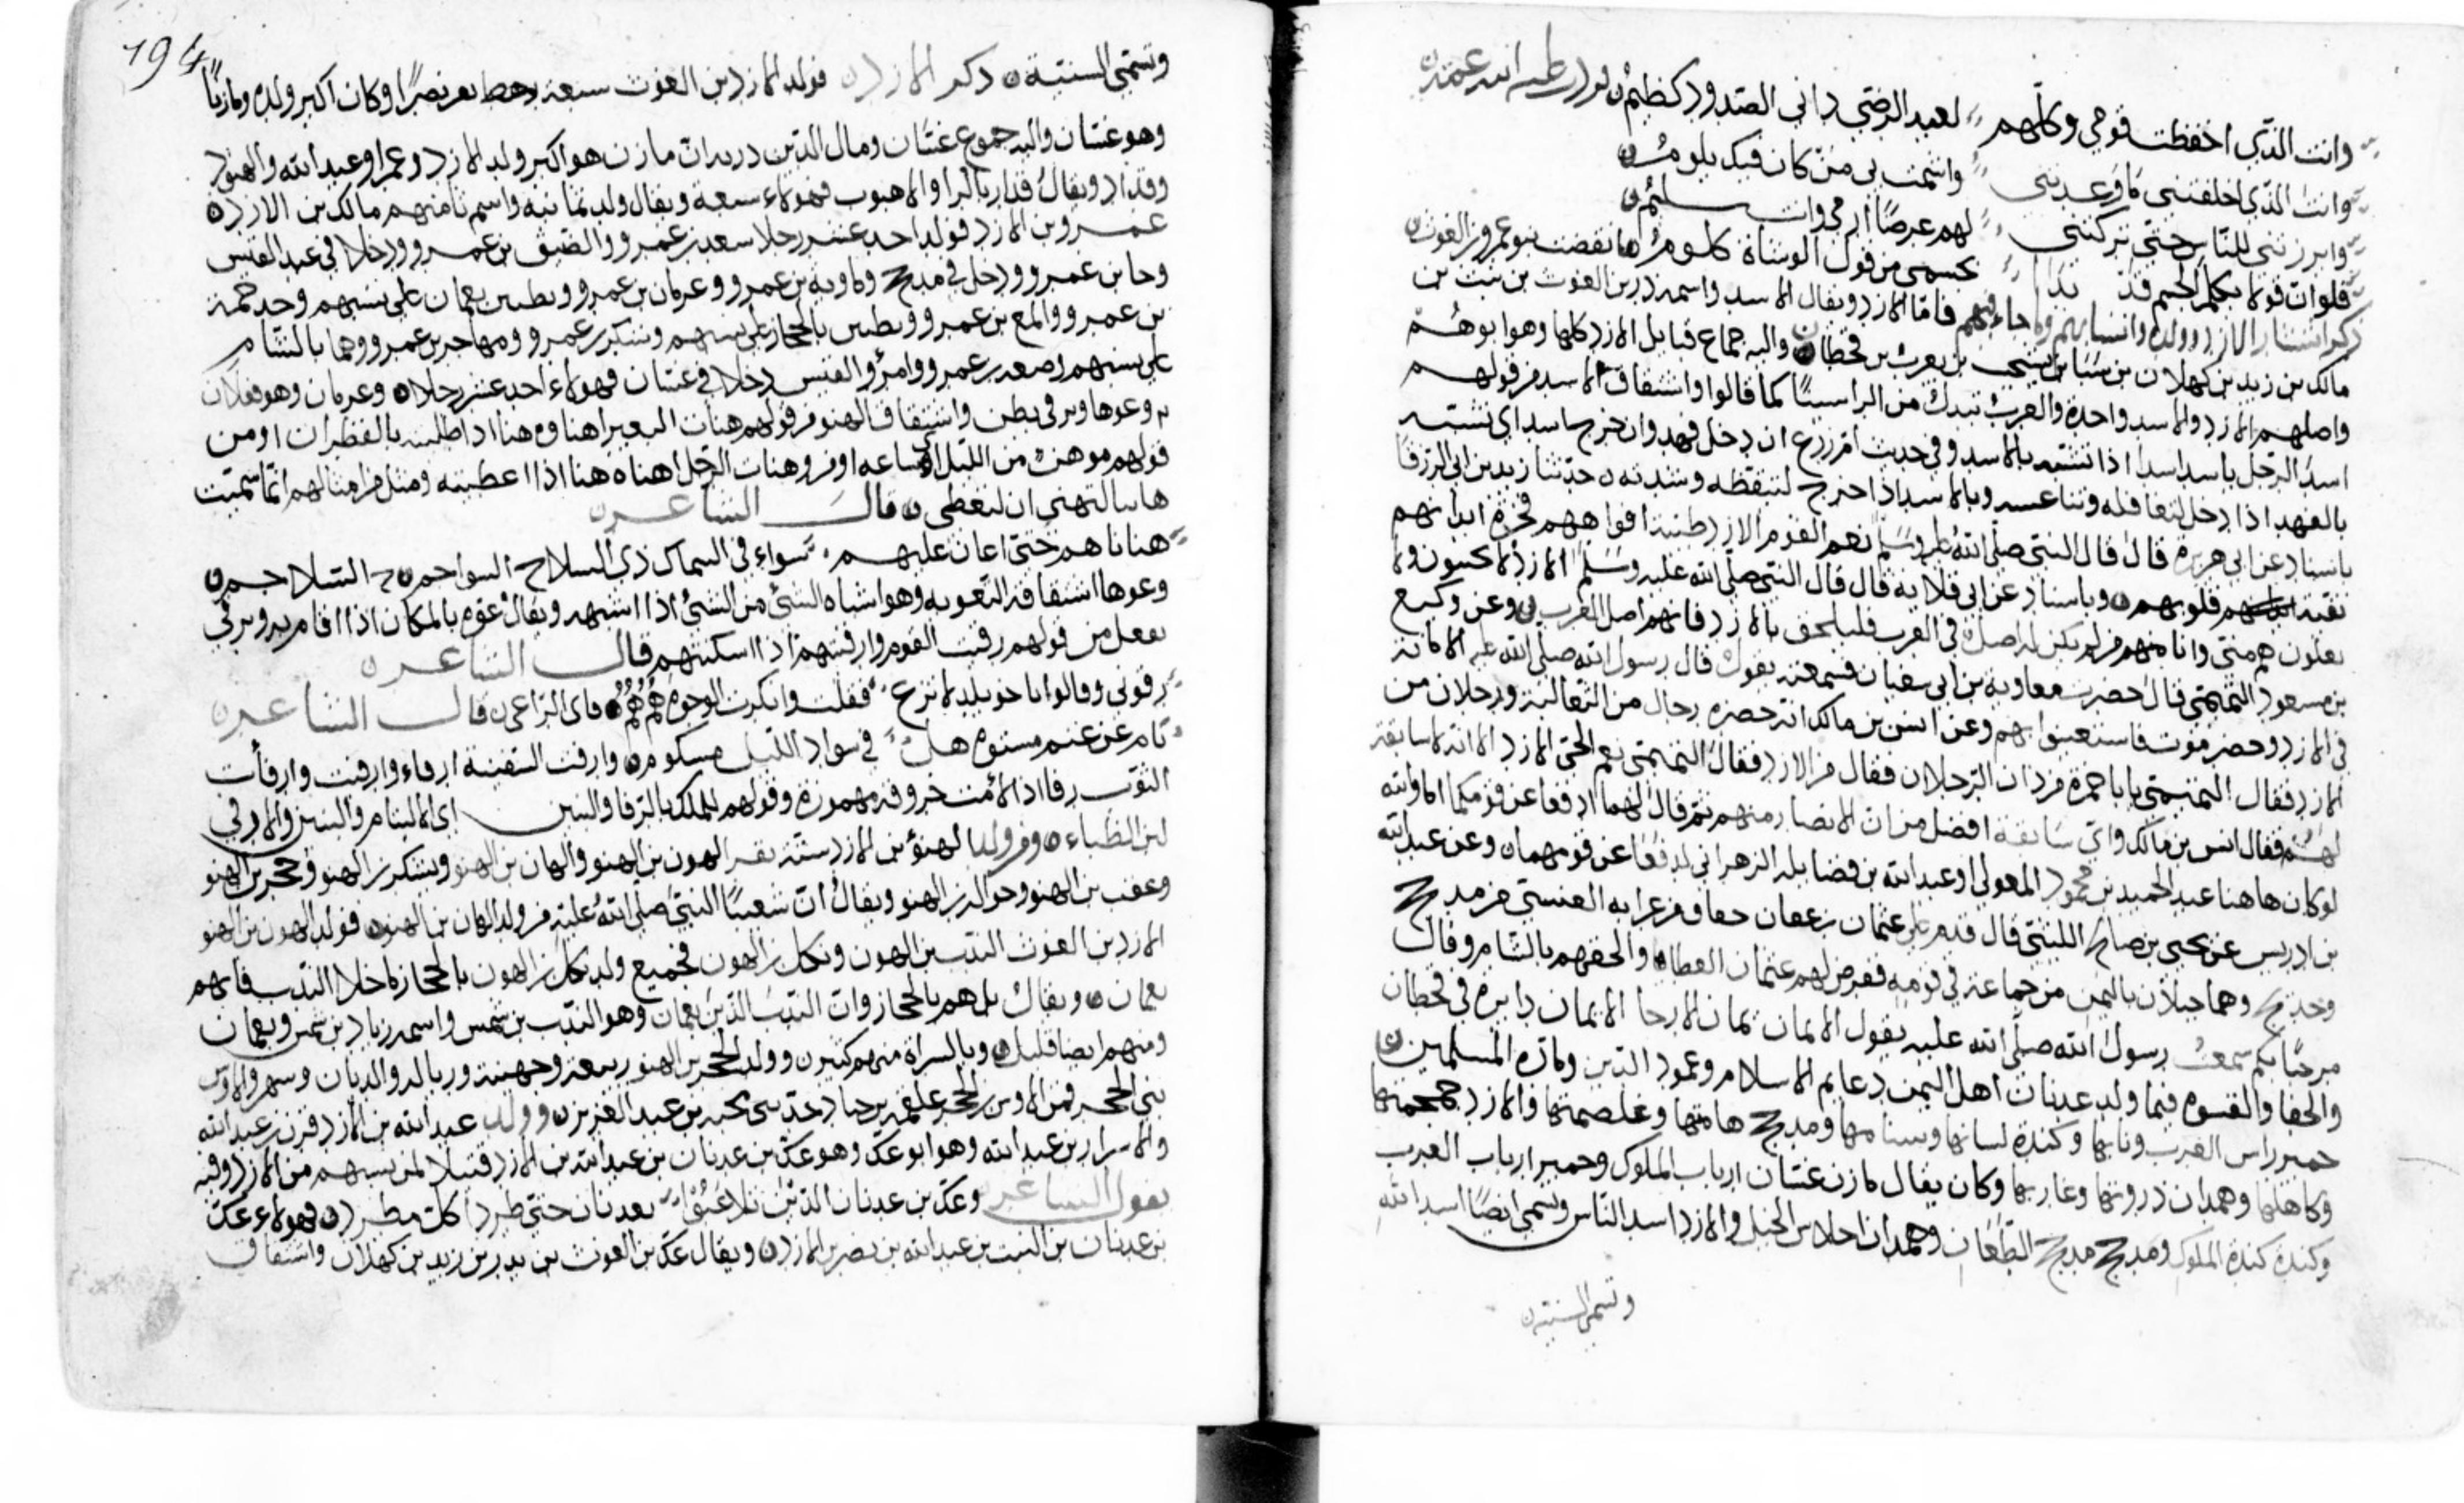 وانت الذي احفظت قومي وكلهم لعبد الرضى داني الصدود كظيم
وانت الذي اخلفتني ما وعدتني واشمت بي من كان فيك يلوم
وابرزتني للناس حتى تركتني لهم عرضا ارمى وانت سليم
فلو ان قولا يكلم الجسم قد بدا بجسمي من قول الوشاة كلوم انقضت بنو عمرو بن الغوث
ذكر انتشار الازد وولده وانسابهم وما جاء فيهم فاما الازد ويقال الاسد واسمه در بن الغوث بن نبت بن
مالك بن زيد بن كهلان بن سبا بن يشجب بن يعرب بن قحطان واليه جماع قبايل الازد كلها وهو ابوهم
واصلهم الازد والاسد واحدة والعرب تبدل من الزا سينا كما قالوا واشتقاق الاسد من قولهم
اسد الرجل ياسد اسدا اذا تشبه بالاسد وفي حديث ام زرع ان دخل فهد وان خرج اسد اي تشبه
بالفهد اذا دخل لتغافله وتناعسه وبالاسد اذا خرج لتيقظه وشدته حدثنا زيد بن ابي الزرقا
باسناد عن ابي هريرة قال قال النبي صلى الله عليه وسلم نعم القوم الازد طيبة افواههم
نقية قلوبهم وباسناد عن ابي قلابة قال قال النبي صلى الله عليه وسلم الازد لا يجبنون ولا
يغلون هم مني وانا منهم من لم يكن له اصل في العرب فليلحق بالازد فانهم اصل العرب وعن وكيع
بن مسعود التميمي قال حضرت معاوية بن ابي سفيان فسمعته يقول قال رسول الله صلى الله عليه الامانة
في الازد وحضرموت فاستعينوا بهم وعن انس بن مالك انه حضره رجال من الثعالبة ورجلان من
الازد فقال التميمي يا با حمزة من ذان الرجلان فقال من الازد فقال التميمي نعم الحي الازد الا انه لا سابقة
لهم فقال انس بن مالك واي سابقة افضل من ان الانصار منهم ثم قال لهما ادفعا عن قومكما اما والله
لو كان هاهنا عبد الحميد بن محمود المعولي او عبد الله بن فضالة الزهراني لدفعا عن قومهما وعن عبد الله
بن ادريس عن يحيى بن صالح الليثي قال قدم على عثمان بن عفان من مذحج
وهما جبلان باليمن من جماعة في قومه ففرض لهم عثمان العطا والحقهم بالشام وقال
مرحبا بكم سمعت رسول الله صلى الله عليه يقول الايمان يمان الارحا الايمان دايرة في قحطان
والجفا والقسوة فيما ولد عدنان اهل اليمن دعايم الاسلام وعمود الدين ومادة المسلمين
حمير راس العرب ونابها وكندة لسانها وسنامها ومذحج هامتها وغلصمتها والازد جمجمتها
وكاهلها وهمدان ذروتها وغاربها وكان يقال مازن غسان ارباب الملوك وحمير ارباب العرب
وكندة كندة الملوك ومذحج مذحج الطعان وهمدان احلاس الخيل والازد اسد الناس وتسمى ايضا اسد الله
وتسمى السنية
194
وتسمى السنية ذكر الازد فولد الازد بن الغوث سبعة رهط نصرا وكان اكبر ولده ومازنا
وهو غسان واليه جموع غسان وقال الدريد ان مازن هو اكبر ولد الازد وعمرا وعبد الله والهنو
وقدار ويقال قدار بالرا والاهبوب فهولاء سبعة ويقال ولد ثمانية واسم ثامنهم مالك بن الازد
عمرو بن الازد فولد احد عشر رجلا سعد بن عمرو والضيق بن عمرو ودخلا في عبد القيس
وحا بن عمرو ودخل في مذحج وماوية بن عمرو وعرمان بن عمرو وبطين بعمان على نسبهم وجد حمة
بن عمرو والمع بن عمرو وبطين بالحجاز على نسبهم ويشكر بن عمرو ومهاجر بن عمرو وهما بالشام
على نسبهم وصعد بن عمرو وامرؤ القيس دخلا في غسان فهولاء احد عشر رجلا وعرمان وهو فعلان
واشتقاق الهنو من قولهم هنات البعير اهناوه هناا اذا طليته بالقطران او من
قولهم مر هنء من الليل اي ساعة او من وهنات الرجل اهناه هنا اذا اعطيته ومثل من امثالهم انما سميت
هانيا لتهني اي لتعطي قال الشاعر
هنانا هم حتى اعان عليهم سواء في السماك ذي السلاح السواجم السلاجم
ويقال عوه بالمكان اذا اقام به ويرقى
يفعل من قولهم رقيت القوم وارقيتهم اذا اسكنتهم قال الشاعر
رفوني وقالوا يا خويلد لا ترع فقلت وانكرت الوجوه هم هم قال الراعي قال الشاعر
في سواد الليل وارفت السفينة ارفاء وارفيت وارفأت
الثوب رفا اذا لأمت خروقه مهموزة وقولهم للملك بالرفا والبنين اي الالتيام والبنين والارفي
لبن الظباء ومن ولد الهنؤ بن الازد ستة نفر الهون بن الهنو والهان بن الهنو ويشكر بن الهنو وحجر بن الهنو
وعقب بن الهنو وحوالة بن الهنو ويقال ان شعيبا النبي صلى الله عليه من ولد الهان بن الهنو فولد الهون بن الهنو
الازد بن الغوث الندب بن الهون ونكل بن الهون فجميع ولد نكل بن الهون بالحجاز ما خلا الندب فانهم
بعمان ويقال بل هم بالحجاز وان الندب الذين بعمان وهو الندب بن شمس واسمه زياد بن شمس وبعمان
ومنهم ايضا قليل وبالسراة منهم كثير وولد الحجر بن الهنو ربيعة وجهينة وربالد والديان وسهر والاوس
بني الحجر فمن الاوس بن الحجر علقمة بن جنادة بن عبد العزيز وولد عبد الله بن الازد قرن بن عبد الله
بن عبد الله وهو ابو عك وهو عك بن عدنان بن عبد الله بن الازد قبيلا من نسبهم من الازد وفيه
يقول الشاعر وعك بن عدنان الذين تلاعبوا بعدنان حتى طردا كل مطرد فهولاء عك
بن عدنان بن النبت بن عبد الله بن نصر بن الازد ويقال عك بن الغوث بن يدر بن زيد بن كهلان واشتقاق